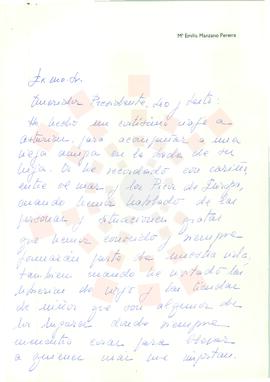 Mª Emilia Manzano Pereira
Querido Presidente, Leo y
He hecho un cortísimo viaje a
Asturias, para acompañar a una
vieja amiga en la boda de su
hija. Os he recordado con cariño
entre el mar y los Picos de Europa,
cuando hemos hablado de las
personas y situaciones gratas
que hemos conocido y siempre
formarán parte de nuestra vida,
también cuando he visitado las
librerías de viejo y las tiendas
de niños que son algunos de
los lugares donde siempre
encuentro cosas para llevar
a quienes más me importan.